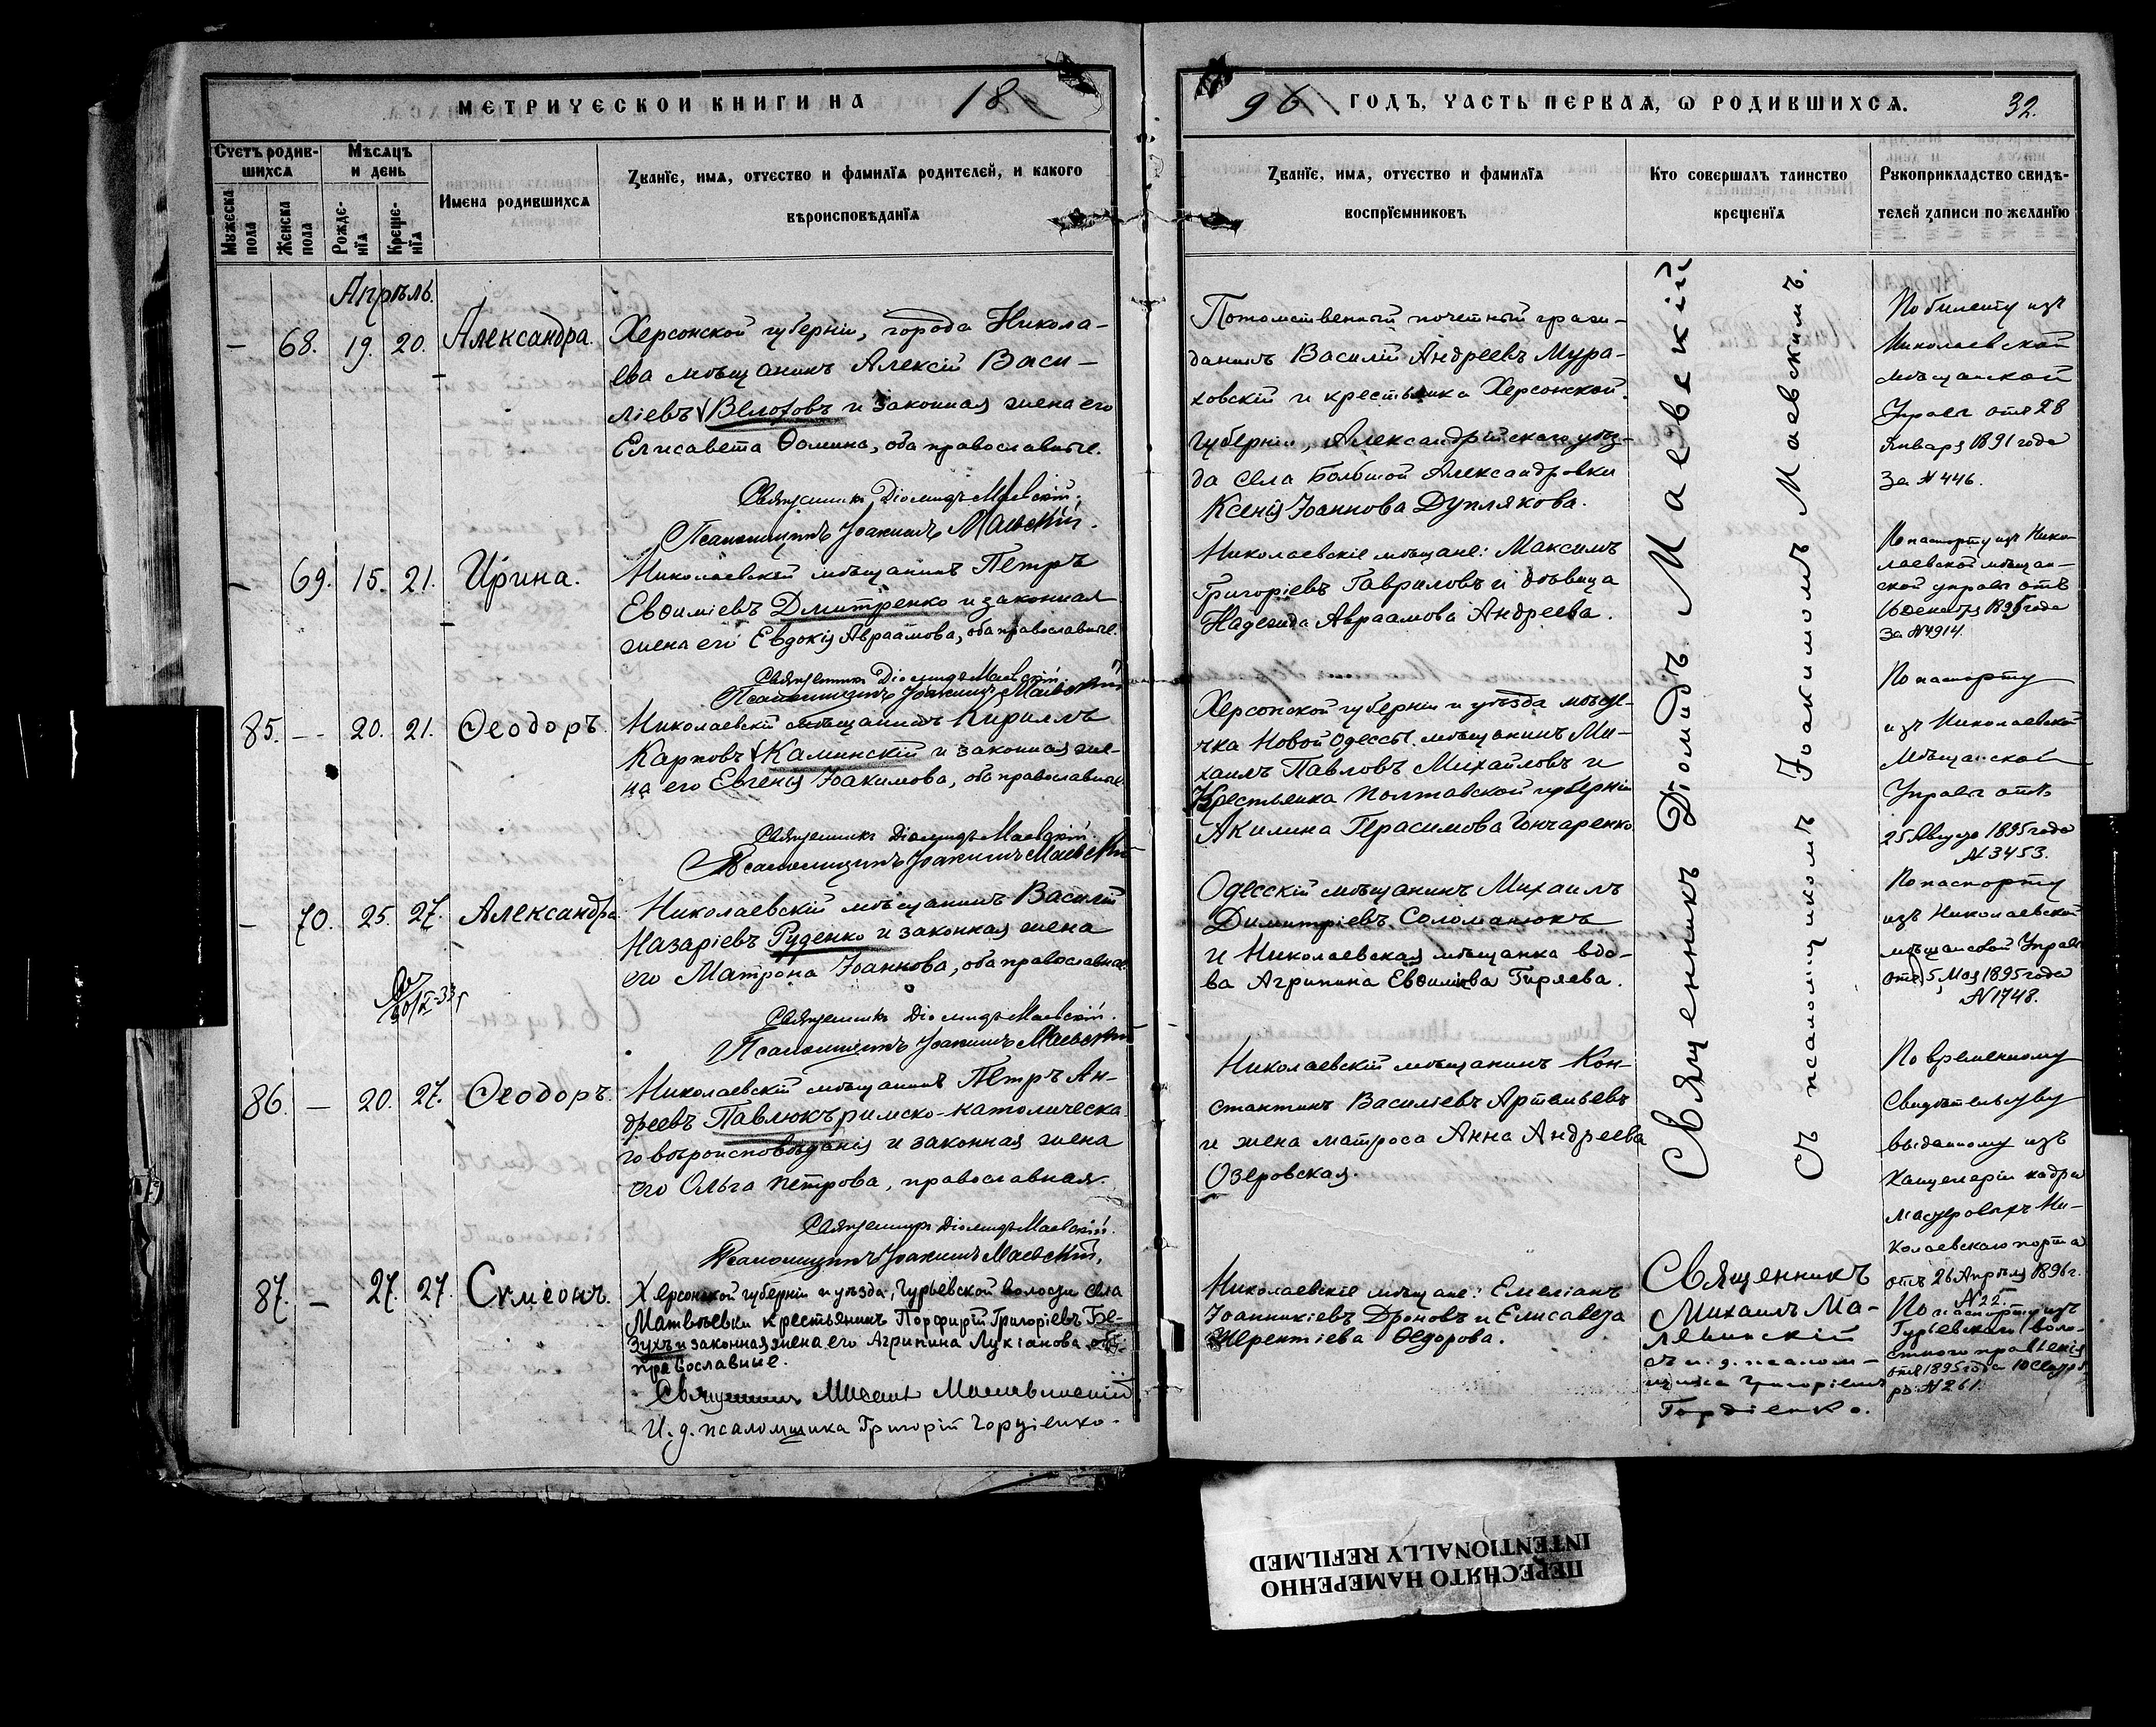 МЕТРИЧЕСКОЙ КНИГИ НА 18
96 ГОДЪ, ЧАСТЬ ПЕРВАЯ, Ѡ РОДИВШИХСЯ. 32.
Счетъ родив-
шихся
Мужеска
пола
Женска
пола
Мѣсяцъ
и день
Рожде-
нїя
Креще-
нїя
Имена родившихся
Званїе, имя, отчество и фамилїя родителей, и какого
вѣроисповѣданїя
Званїе, имя, отчество и фамилїя
воспрїемниковъ
Кто совершалъ таинство
крещенїя
Рукоприкладство свидѣ-
телей записи по желанїю
Апрѣль.
– 68. 19. 20. Александра.
Херсонской губерніи, города Никола-
ева мѣщанинъ Алексій Васи-
ліевъ Белоховъ и законная жена его
Елисавета Ѳомина, оба православные.
Священникъ Діомидъ Маевскій.
Псаломщикъ Іоакимъ Маевскій.
Потомственный почетный граж-
данинъ Василій Андреевъ Мура-
ховскій и крестьянка Херсонской
губерніи, Александрійскаго уѣз-
да села Большой Александровки
Ксенія Іоаннова Дуплякова.
По билету изъ
Николаевской
мѣщанской
Управы отъ 28
Января 1891 года
за №446.
– 69. 15. 21. Ирина.
Николаевскій мѣщанинъ Петръ
Евѳиміевъ Дмитренко и законная
жена его Евдокія Авраамова, оба православные.
Священникъ Діомидъ Маевскій.
Псаломщикъ Іоакимъ Маевскій
Николаевскіе мѣщане: Максимъ
Григоріевъ Гавриловъ и дѣвица
Надежда Авраамова Андреева.
По паспорту изъ Нико-
лаевской мѣщан-
ской управы отъ
16 декабря 1895 года
за №4914.
85. – 20. 21. Ѳеодоръ.
Николаевскій мѣщанинъ Кириллъ
Карповъ Каминскій и законная же-
на его Евгенія Іоакимова, оба православные.
Священникъ Діомидъ Маевскій.
Псаломщикъ Іоакимъ Маевскій
Херсонской губерніи и уѣзда мѣсте-
чка Новой Одессы мѣщанинъ Ми-
хаилъ Павловъ Михайловъ и
Крестьянка Полтавской губерніи
Акилина Герасимова Гончаренко.
По паспорту
изъ Николаевской
Мѣщанской
Управы отъ
25 Августа 1895 года
№3453.
– 70. 25. 27. Александра
Николаевскій мѣщанинъ Василій
Назаріевъ Руденко и законная жена
его Матрона Іоаннова, оба православные.
Священникъ Діомидъ Маевскій.
Псаломщикъ Іоакимъ Маевскій
Одесскій мѣщанинъ Михаилъ
Димитріевъ Соломанюкъ
и Николаевская мѣщанка вдо-
ва Агрипина Евѳимова Гиряева.
По паспорту
изъ Николаевской
мѣщанской Управы
отъ 5 Мая 1895 года
№1748.
86. – 20. 27. Ѳеодоръ.
Николаевскій мѣщанинъ Петръ Ан-
дреевъ Павлюкъ римско-католическа-
го вѣроисповѣданія и законная жена
его Ольга Петрова, православная.
Священникъ Діомидъ Маевскій.
Псаломщикъ Іоакимъ Маевскій.
Николаевскій мѣщанинъ Кон-
стантинъ Василіевъ Артемьевъ
и жена матроса Анна Андреева
Озеровская.
По временному
Свидѣтельству
выданному изъ
Канцеляріи кадры
мастеровыхъ Ни-
колаевскаго порта
отъ 26 Апрѣля 1896 г.
№22.
Священникъ Діомидъ Маевскій
Съ псаломщикомъ Іоакимомъ Маевскимъ.
87. – 27. 27. Сѵмеонъ.
Херсонской губерніи и уѣзда, Гурьевской волости села
Матвѣевки крестьянинъ Порфирій Григоріевъ Бе-
зухъ и законная жена его Агрипина Лукіанова оба
православные.
Священникъ Михаил
И. д. псаломщика Григорій Гордіенко.
Николаевскіе мѣщане: Емеліанъ
Іоанникіевъ Дроновъ и Елисавета
Терентіева Ѳедорова.
Священникъ
Михаилъ Ма-
съ и. д. псалом-
щика Григоріемъ
Гордіенко.
По паспорту изъ
Гурьевскаго воло-
стного правленія
отъ 1895 года 10
№261.
ПЕРЕСНЯТО НАМЕРЕННО
INTENTIONALLY REFILMED